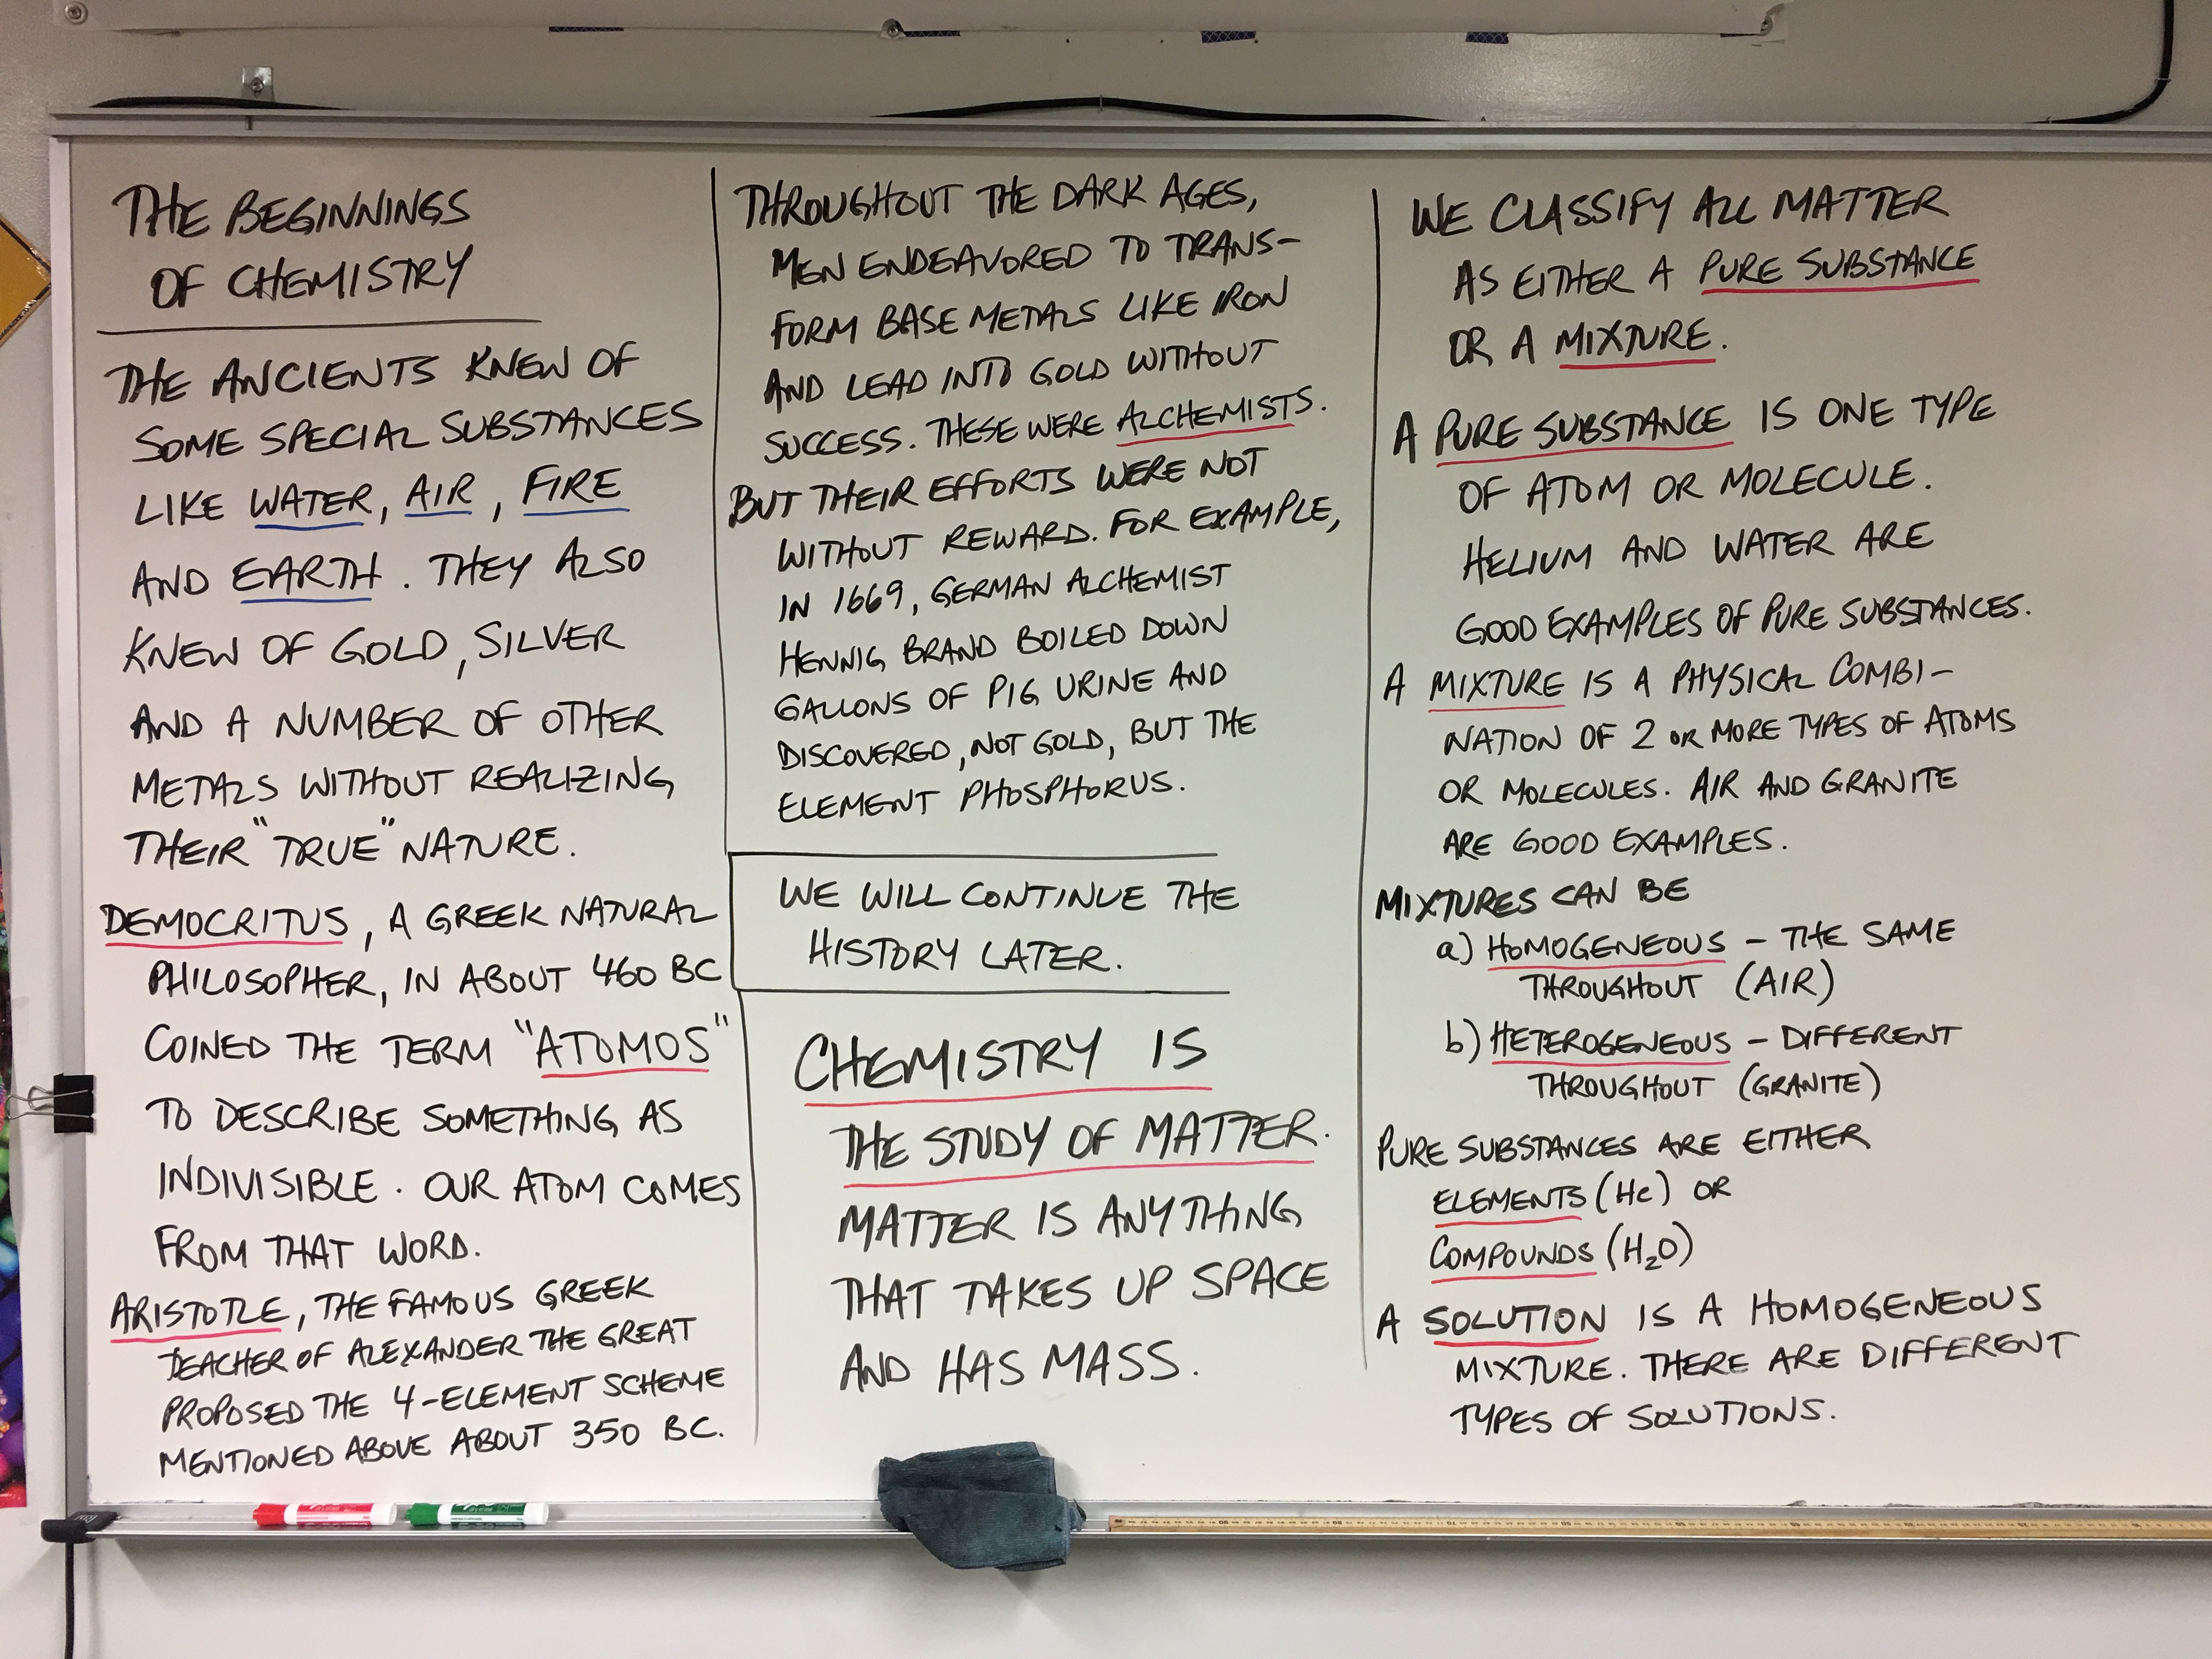 THE BEGINNINGS
OF CHEMISTRY
THE ANCIENTS KNEW OF
SOME SPECIAL SUBSTANCES
LIKE WATER, AIR, FIRE
AND EARTH. THEY ALSO
KNEW OF GOLD, SILVER
AND A NUMBER OF OTHER
METALS WITHOUT REALIZING
THEIR "TRUE" NATURE.
DEMOCRITUS, A GREEK NATURAL
PHILOSOPHER, IN ABOUT 460 BC
COINED THE TERM "ATOMOS"
TO DESCRIBE SOMETHING AS
INDIVISIBLE. OUR ATOM COMES
FROM THAT WORD.
ARISTOTLE, THE FAMOUS GREEK
TEACHER OF ALEXANDER THE GREAT
PROPOSED THE 4-ELEMENT SCHEME
MENTIONED ABOVE ABOUT 350 BC.
THROUGHOUT THE DARK AGES,
MEN ENDEAVORED TO TRANS-
FORM BASE METALS LIKE IRON
AND LEAD INTO GOLD WITHOUT
SUCCESS. THESE WERE ALCHEMISTS.
BUT THEIR EFFORTS WERE NOT
WITHOUT REWARD. FOR EXAMPLE,
IN 1669, GERMAN ALCHEMIST
HENNIG BRAND BOILED DOWN
GALLONS OF PIG URINE AND
DISCOVERED, NOT GOLD, BUT THE
ELEMENT PHOSPHORUS.
WE WILL CONTINUE THE
HISTORY LATER.
CHEMISTRY IS
THE STUDY OF MATTER.
MATTER IS ANYTHING
THAT TAKES UP SPACE
AND HAS MASS.
WE CLASSIFY ALL MATTER
AS EITHER A PURE SUBSTANCE
OR A MIXTURE.
A PURE SUBSTANCE IS ONE TYPE
OF ATOM OR MOLECULE.
HELIUM AND WATER ARE
GOOD EXAMPLES OF PURE SUBSTANCES.
A MIXTURE IS A PHYSICAL COMBI-
NATION OF 2 OR MORE TYPES OF ATOMS
OR MOLECULES. AIR AND GRANITE
ARE GOOD EXAMPLES.
MIXTURES CAN BE
a) HOMOGENEOUS - THE SAME
THROUGHOUT (AIR)
b) HETEROGENEOUS - DIFFERENT
THROUGHOUT (GRANITE)
PURE SUBSTANCES ARE EITHER
ELEMENTS (He) OR
COMPOUNDS (H₂O)
A SOLUTION IS A HOMOGENEOUS
MIXTURE. THERE ARE DIFFERENT
TYPES OF SOLUTIONS.